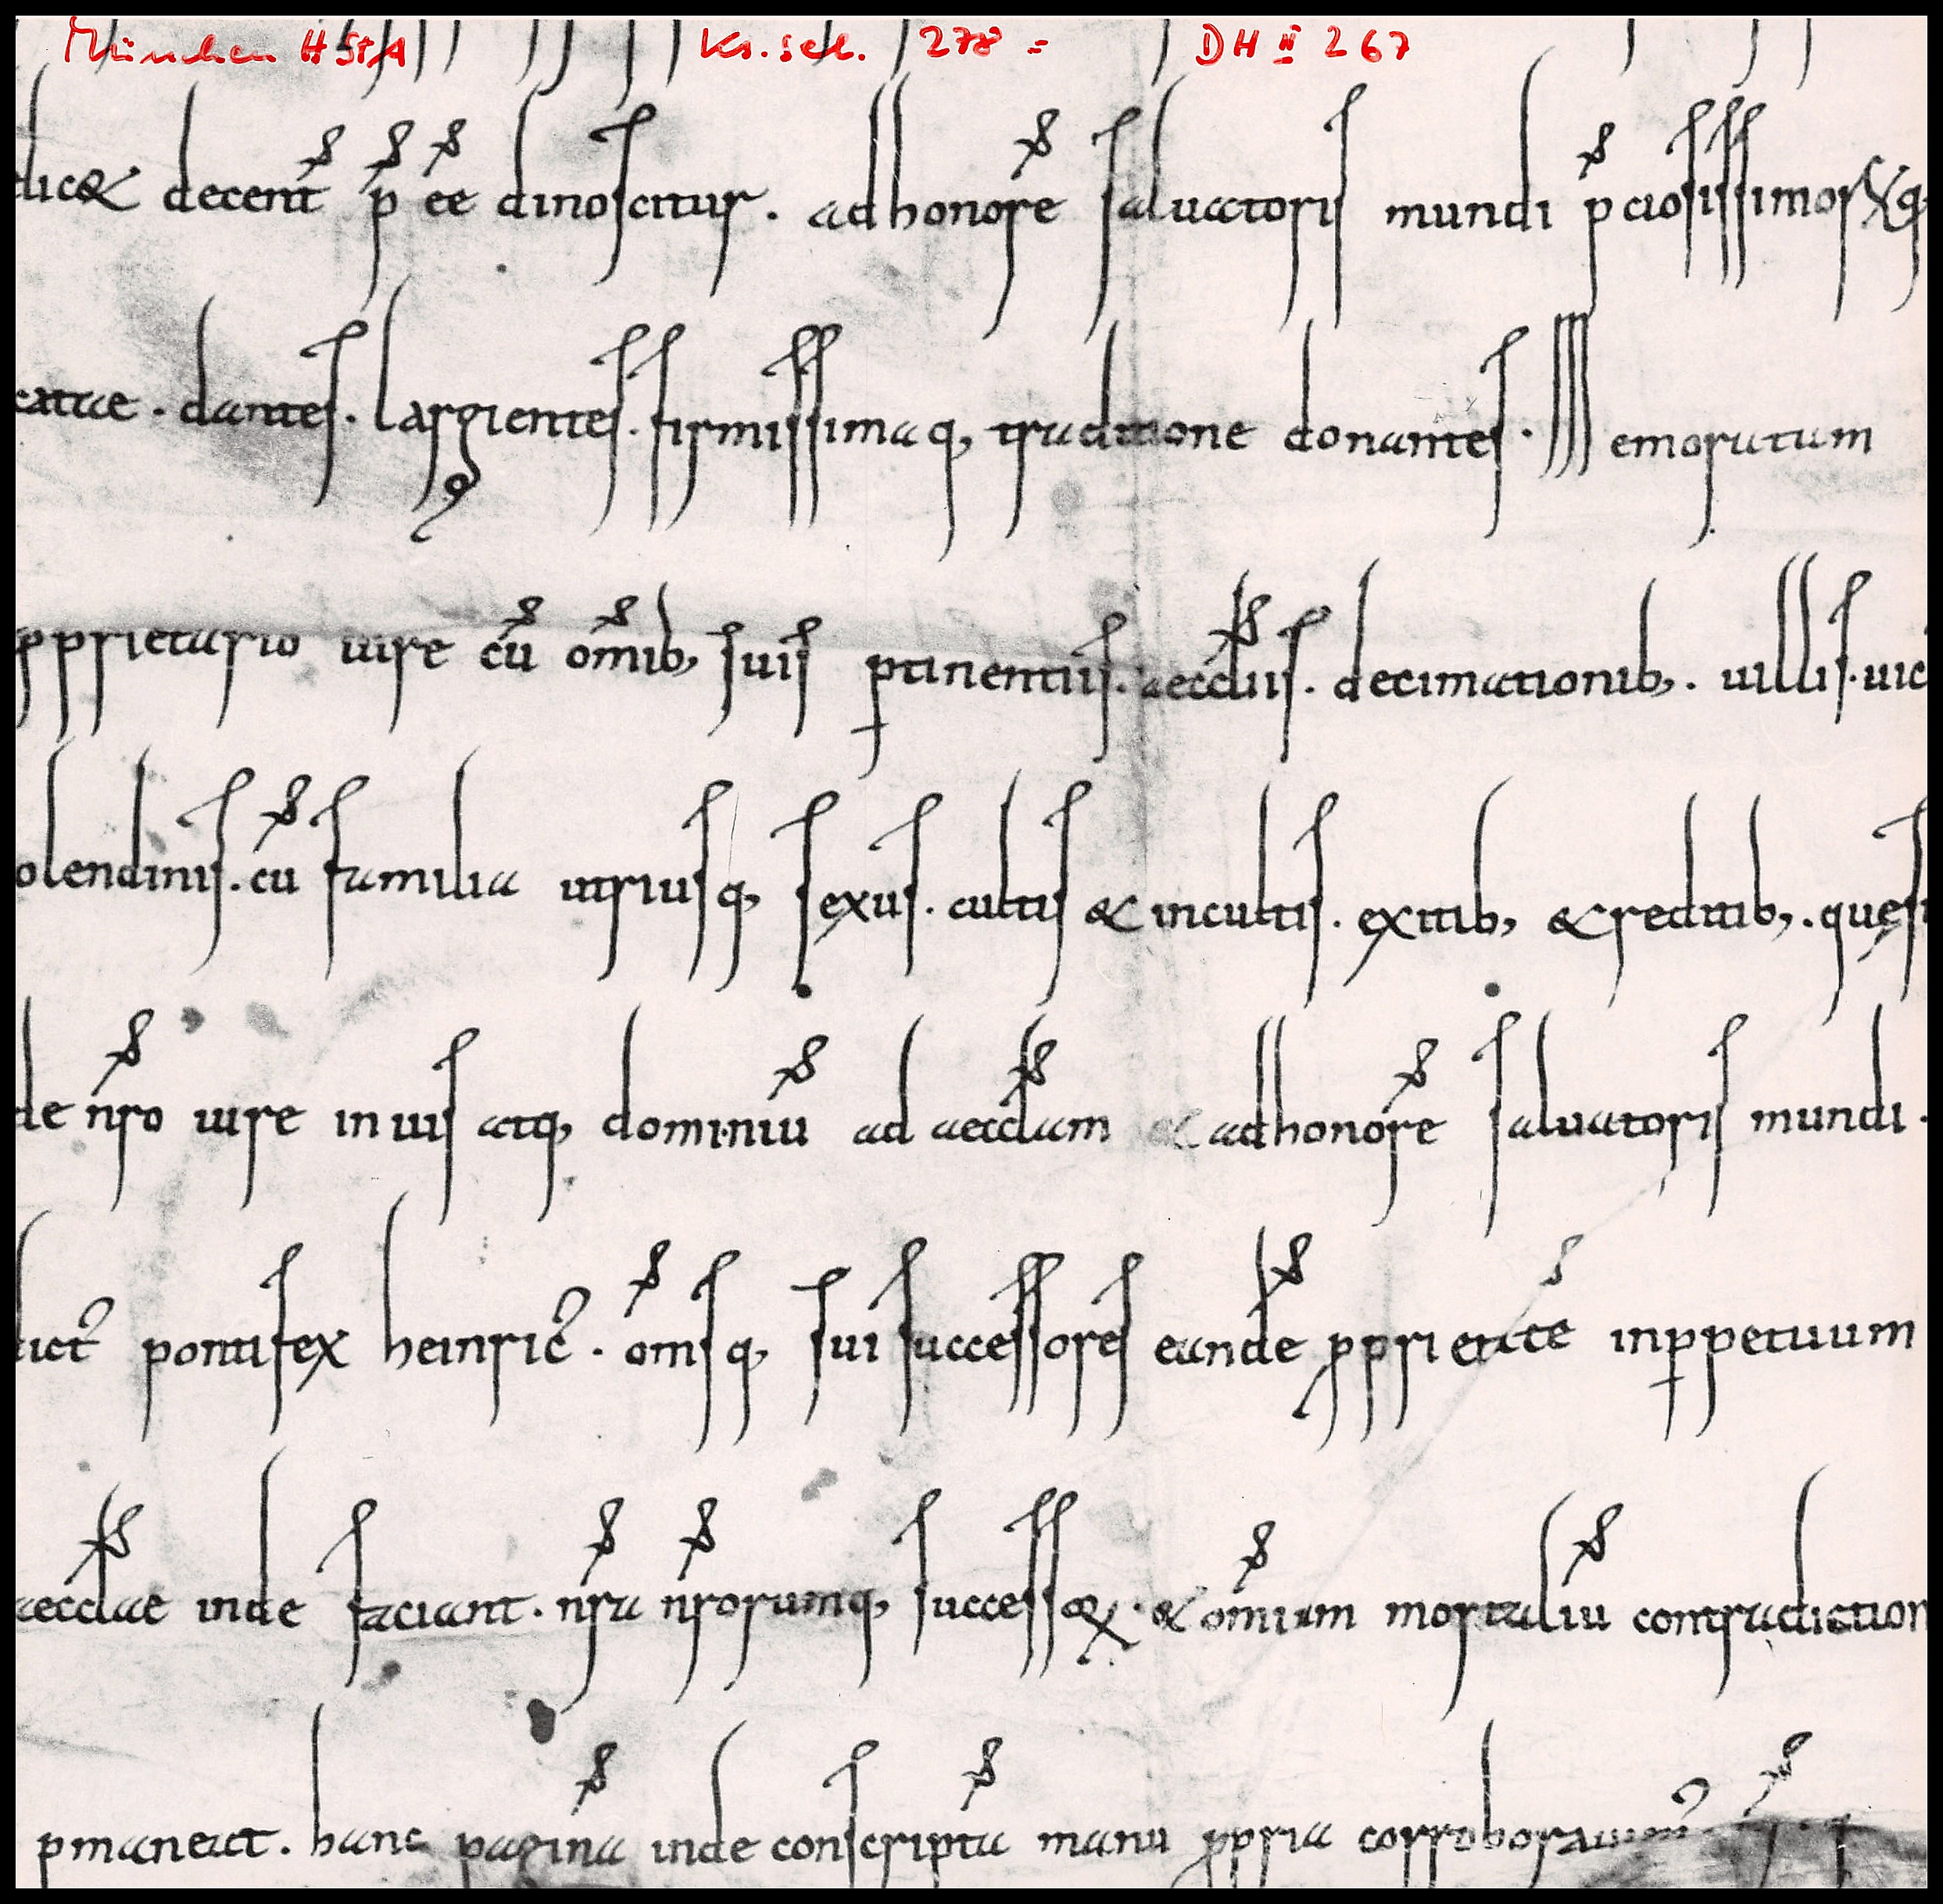 München HStA Ks. sel. 278 = DH II 267
dic& decent p ee dinoscitur. ad honore saluatoris mundi pciosissimos
dantes. largientes. firmissimaq, traditione donantes. Memoratum
pprietario iure cu omib, suis ptinentiis. aeccliis. decimationib,. uillis. uic
olendinis. cu familia utriusq, sexus. cultis & incultis. exitib, & redditib,. quesi
de nro iure in uis atq, dominiu ad aecclam & ad honore saluatoris mundi.
dict pontifex heinric. omsq, sui successores eande pprietate inppetuum
aecclae inde faciant. nra nrorumq, success & omium mortaliu contradiction
pmaneat. hanc pagina inde conscripta manu ppria